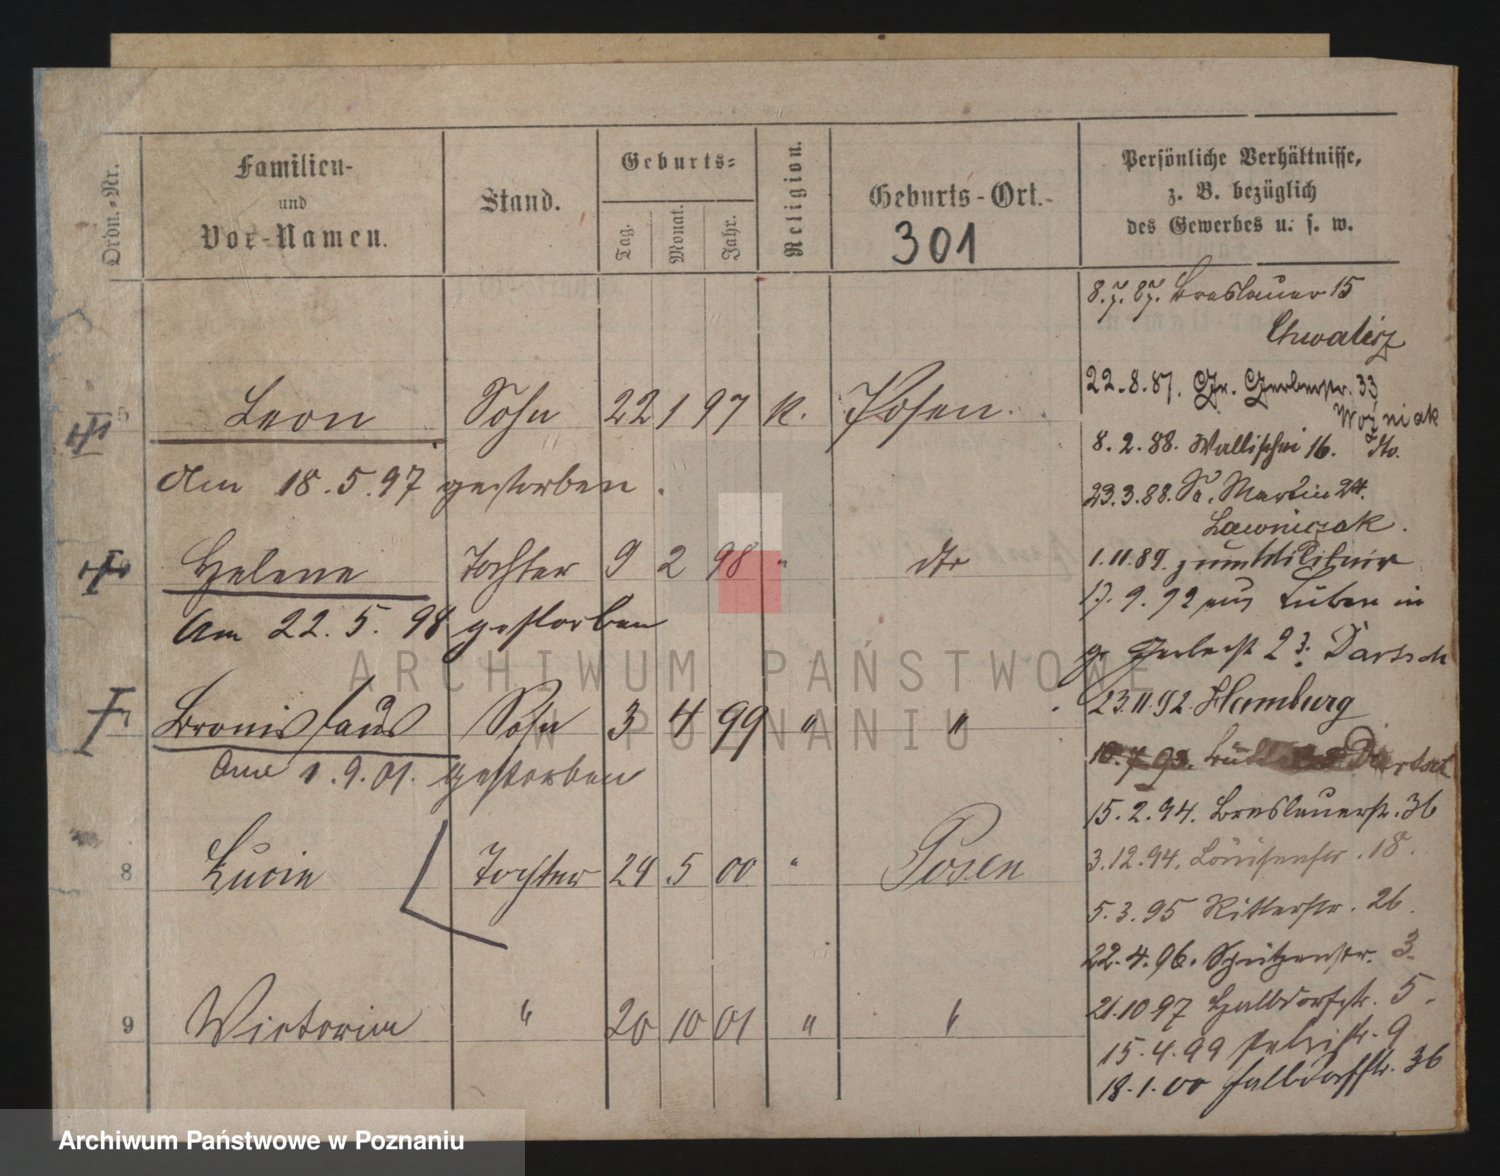 Ordn.-Nr.
Familien-
und
Vor-Namen.
Stand.
Geburts-
Tag.
Monat.
Jahr.
Religion.
Geburts-Ort.
301
Persönliche Verhältnisse,
z. B. bezüglich
des Gewerbes u. s. w.
8.7.87. Breslauer 15
Chwalisz
22.8.87. Gr. Gerberstr. 33
Woźniak
5 Leon Sohn 22 1 97 k. Posen.
8.2.88. Wallischei 16. dto.
Am 18.5.97 gestorben.
23.3.88. St. Martin 24.
Lawniczak.
Helene Tochter 9 2 98 " dto
1.11.89. zum Militair
17.9.92 aus Luben in
Am 22.5.98 gestorben
gr Gerberst 23. Dartsch
7 Bronislaus Sohn 3 4 99 " "
23.11.92. Hamburg
Am 1.9.01. gestorben
10.7.93.
15.2.94. Breslauerstr. 36
8 Lucie Tochter 24 5 00 " Posen
3.12.94. Louisenstr. 18.
5.3.95 Ritterstr. 26.
22.4.96. Schützenstr. 3.
21.10.97 Halbdorfstr. 5.
9 Victoria " 20 10 01 " "
15.4.99 9
18.1.00 Halbdorfstr. 36
ARCHIWUM PAŃSTWOWE
W POZNANIU
Archiwum Państwowe w Poznaniu